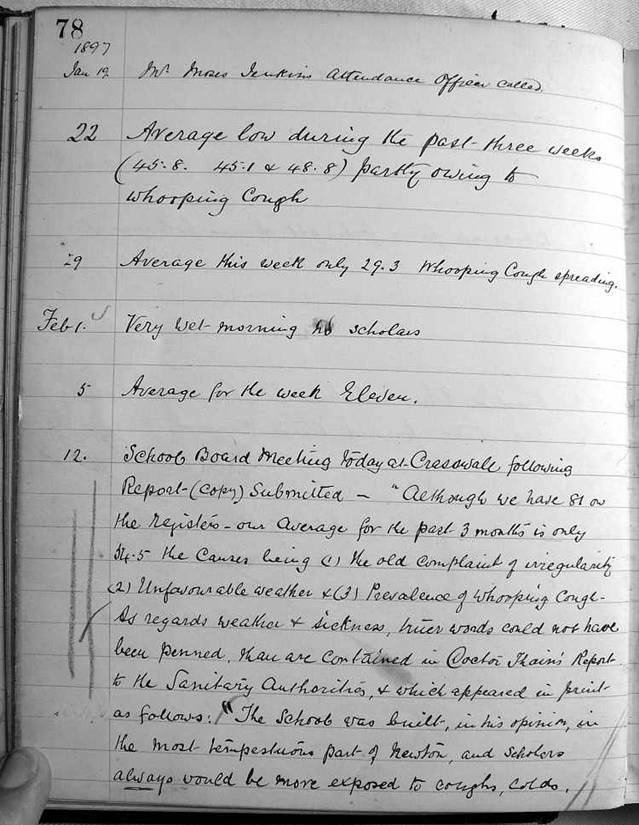 78
1897
Jan 19. Mr Moses Jenkins Attendance Officer called.
22 Average low during the past three weeks
(45.8. 45.1 & 48.8) partly owing to
Whooping Cough
29 Average this week only 29.3 Whooping Cough spreading.
Feb 1. Very wet morning no scholars
5 Average for the week Eleven.
12. School Board Meeting today at Crasswall following
Report (copy) Submitted – "Although we have 81 on
the registers – our Average for the past 3 months is only
34.5 the Causes being (1) The old complaint of irregularity
(2) Unfavourable weather & (3) Prevalence of Whooping Cough –
As regards weather & sickness, truer words could not have
been penned, than are contained in Doctor Thain's Report
to the Sanitary Authorities, & which appeared in print
as follows: "The School was built, in his opinion, in
the most tempestuous part of Newton, and scholars
always would be more exposed to coughs, colds.